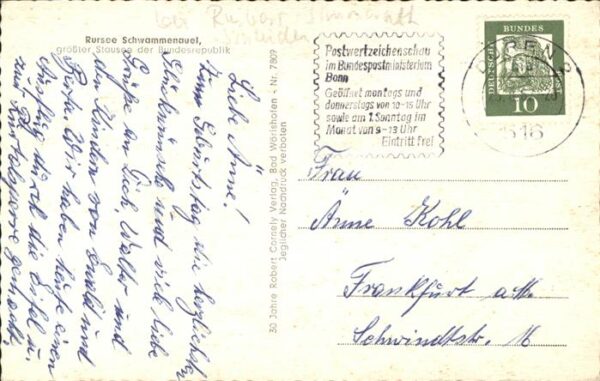 Rursee Schwammenauel,
größter Stausee der Bundesrepublik
Liebe Änne!
Zum Geburtstag die herzlichsten
Glückwünsche und viele liebe
Grüße an Dich, Walter und
die Kinder von Ewald und
Wir haben heute einen
Ausflug durch die Eifel u.
zur gemacht.
30 Jahre Robert Cornely Verlag, Bad Wörishofen · Nr. 7809
Jeglicher Nachdruck verboten
Postwertzeichenschau
im Bundespostministerium
Bonn
Geöffnet montags und
donnerstags von 10-15 Uhr
sowie am 1. Sonntag im
Monat von 9-13 Uhr
Eintritt frei
DÜREN 2
DEUTSCHE
BUNDES
10
Frau
Änne Kohl
Frankfurt a.M.
Schwindtstr. 16